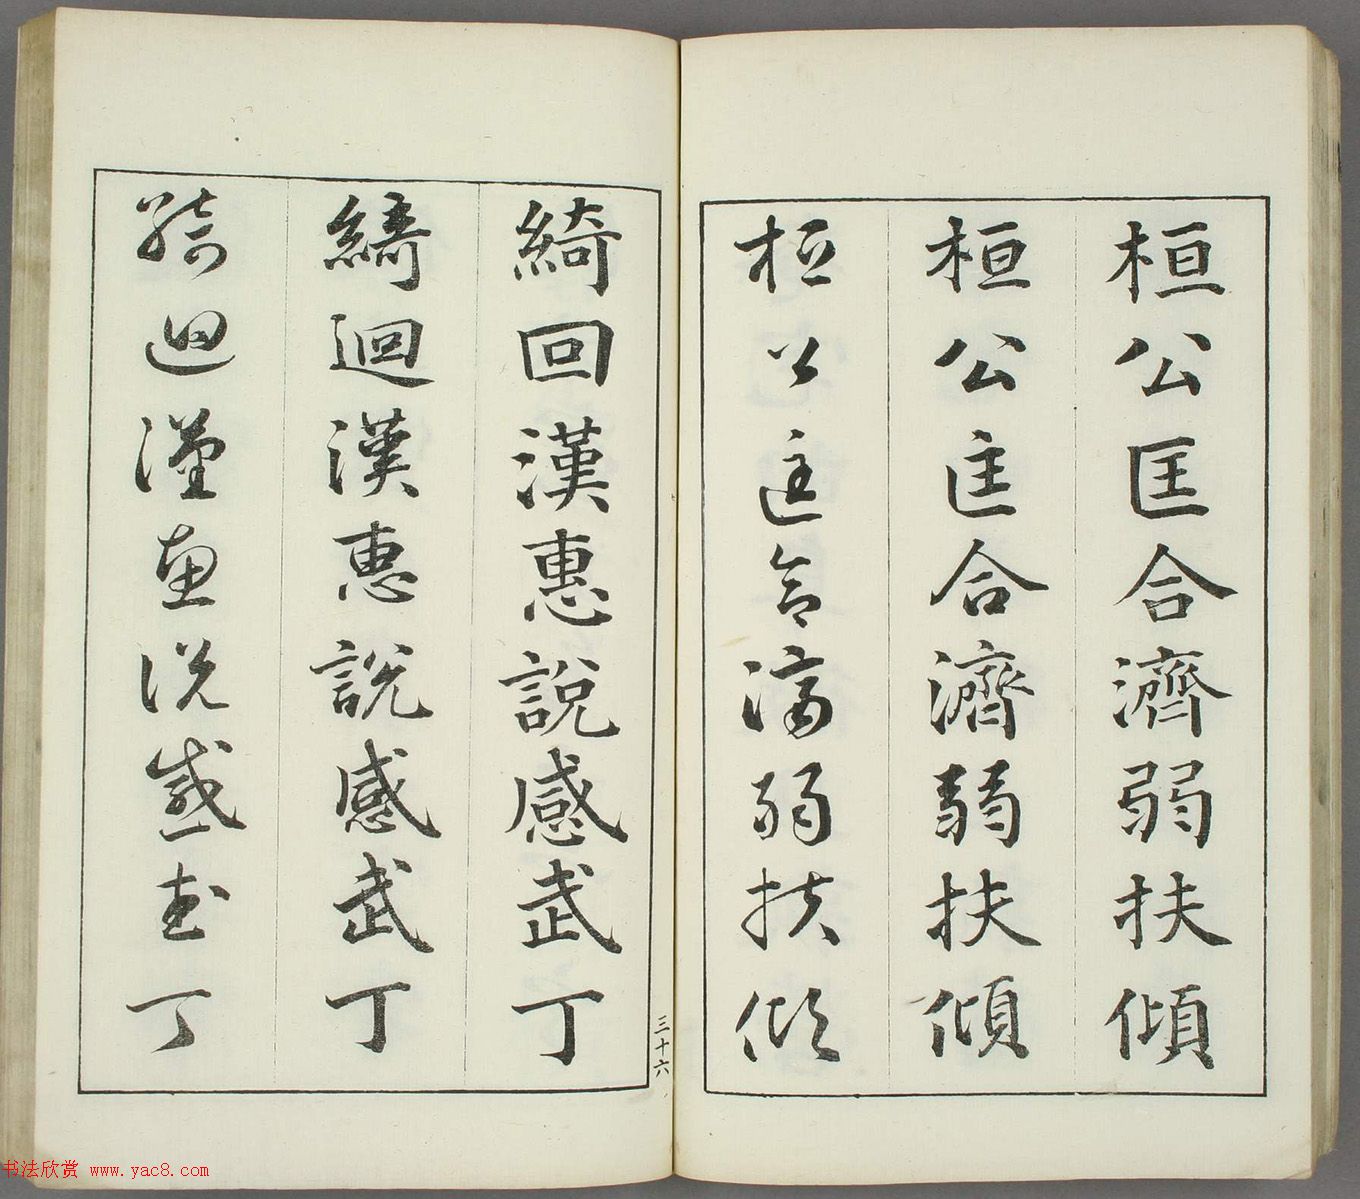 桓公匡合濟弱扶傾
桓公匡合濟弱扶傾
桓公匡合濟弱扶傾
三十六
綺回漢惠說感武丁
綺迴漢惠說感武丁
綺迴漢惠說感武丁
书法欣赏 www.yac8.com